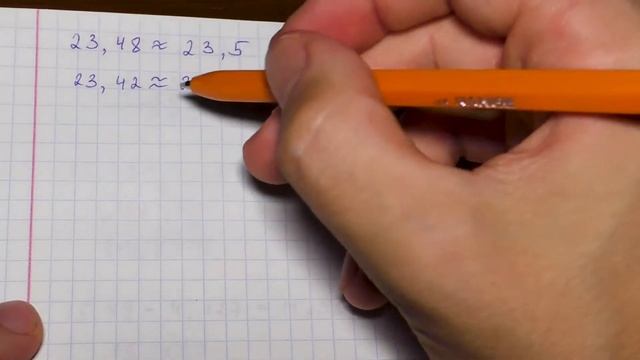 23,48 ≈ 23,5
23,42 ≈